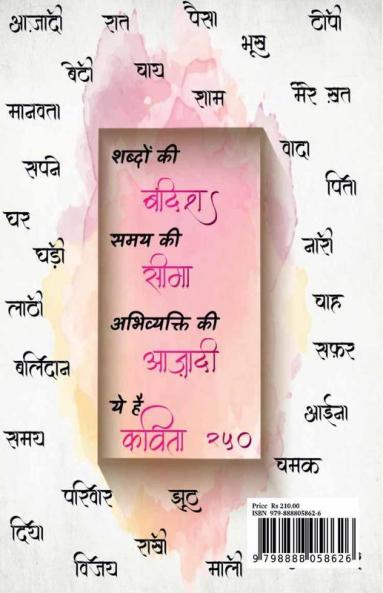 आज़ादी रात पैसा टोपी
भूख
बेटी चाय
शाम मेरे ख़त
मानवता
वादा
सपने
पिता
घर
घड़ी
नारी
लाठी
चाह
सफ़र
बलिदान
आईना
समय
चमक
परिवार झूठ
दिया
राखी
विजय माली
शब्दों की
बंदिश
समय की
सीमा
अभिव्यक्ति की
आज़ादी
ये है
कविता २५०
Price Rs 210.00
ISBN 979-888805862-6
9 798888 058626